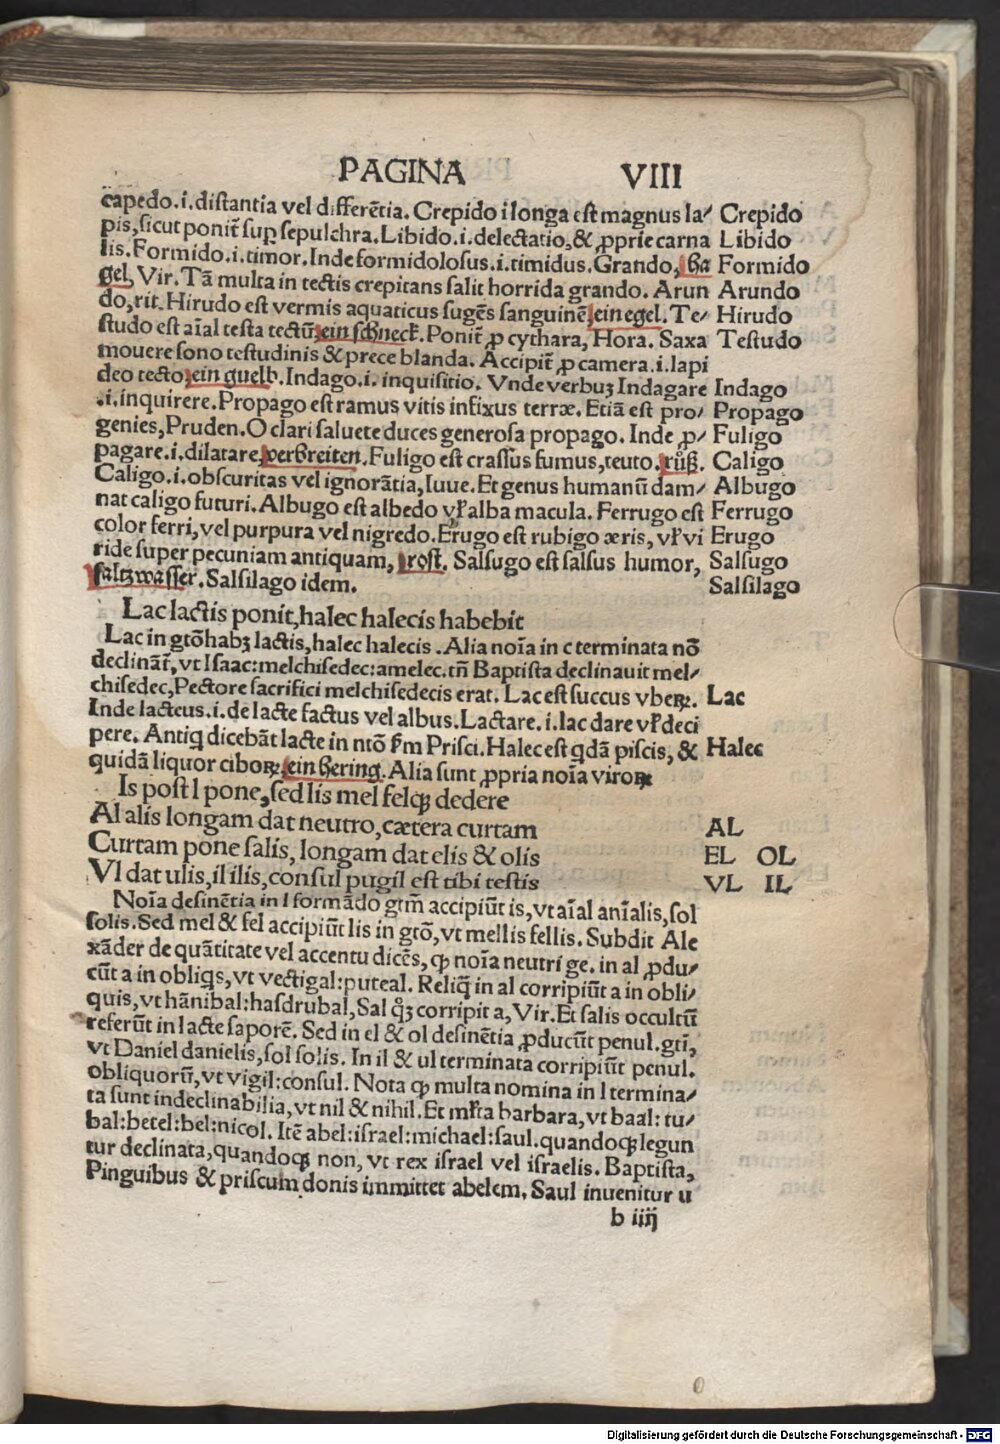 PAGINA VIII
capedo.i.distantia vel differētia. Crepido i longa est magnus la⸗ Crepido
pis, sicut ponit̄ sup̱ sepulchra. Libido.i. delectatio, & ꝓprie carna Libido
lis. Formido.i. timor. Inde formidolosus.i. timidus. Grando, ha Formido
gel, Vir. Tā multa in tectis crepitans salit horrida grando. Arun Arundo
do, rit. Hirudo est vermis aquaticus sugēs sanguinē, ein egel. Te⸗ Hirudo
studo est aīal testa tectū, ein schneck. Ponit̄ ꝓ cythara, Hora. Saxa Testudo
mouere sono testudinis & prece blanda. Accipit̄ ꝓ camera.i. lapi
deo tecto, ein guelb. Indago.i. inquisitio. Vnde verbuꝫ Indagare Indago
.i. inquirere. Propago est ramus vitis infixus terræ. Etiā est pro⸗ Propago
genies, Pruden. O clari saluete duces generosa propago. Inde ꝓ⸗ Fuligo
pagare.i. dilatare, verbreiten. Fuligo est crassus fumus, teuto. růß. Caligo
Caligo.i. obscuritas vel ignorātia, Iuue. Et genus humanū dam⸗ Albugo
nat caligo futuri. Albugo est albedo vꝉ alba macula. Ferrugo est Ferrugo
color ferri, vel purpura vel nigredo. Erugo est rubigo æris, vꝉ vi Erugo
ride super pecuniam antiquam, rost. Salsugo est salsus humor, Salsugo
saltzwasser. Salsilago idem. Salsilago
Lac lactis ponit, halec halecis habebit
Lac in gtō habꝫ lactis, halec halecis. Alia noīa in c terminata nō
declinār̄, vt Isaac: melchisedec: amelec. tñ Baptista declinauit mel⸗
chisedec, Pectore sacrifici melchisedecis erat. Lac est succus vbeꝝ. Lac
Inde lacteus.i. de lacte factus vel albus. Lactare.i. lac dare vꝉ deci
pere. Antiq̄ dicebāt lacte in ntō ẜm Prisci. Halec est q̄dā piscis, & Halec
quidā liquor ciboꝝ, ein hering. Alia sunt ꝓpria noīa viroꝝ
Is post l pone, sed lis mel felqꝫ dedere
Al alis longam dat neutro, cætera curtam AL
Curtam pone salis, longam dat elis & olis EL OL
Vl dat ulis, il ilis, consul pugil est tibi testis VL IL
Noīa desinētia in l formādo gtm̄ accipiūt is, vt aīal anīalis, sol
solis. Sed mel & fel accipiūt lis in gtō, vt mellis fellis. Subdit Ale
xāder de quātitate vel accentu dicēs, ꝙ noīa neutri ge. in al ꝓdu⸗
cūt a in obliq̄s, vt vectigal: puteal. Reliq̄ in al corripiūt a in obli⸗
quis, vt hānibal: hasdrubal, Sal q̊ꝫ corripit a, Vir. Et salis occultū
referūt in lacte saporē. Sed in el & ol desinētia ꝓducūt penul. gtī,
vt Daniel danielis, sol solis. In il & ul terminata corripiūt penul.
obliquorū, vt vigil: consul. Nota ꝙ multa nomina in l termina⸗
ta sunt indeclinabilia, vt nil & nihil. Et mꝉta barbara, vt baal: tu⸗
bal: betel: bel: nicol. Itē abel: israel: michael: saul. quandoqꝫ legun
tur declinata, quandoqꝫ non, vt rex israel vel israelis. Baptista,
Pinguibus & priscum donis immittet abelem. Saul inuenitur u
b iiij
Digitalisierung gefördert durch die Deutsche Forschungsgemeinschaft - DFG